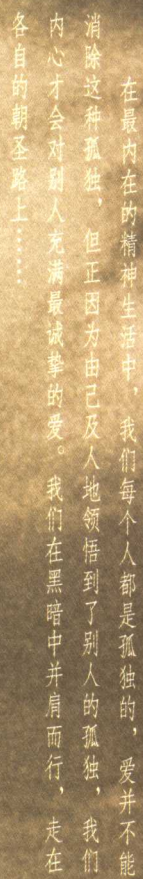 在最内在的精神生活中，我们每个人都是孤独的，爱并不能
消除这种孤独，但正因为由己及人地领悟到了别人的孤独，我们
内心才会对别人充满最诚挚的爱。我们在黑暗中并肩而行，走在
各自的朝圣路上……